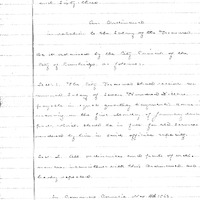 and Sixty three
An Ordinance
in relation to the Salary of the Treasurer
Be it ordained by the City Council of the
City of Cambridge, as follows:
Sect. 1. The City Treasurer shall receive an
annual Salary of Seven Hundred dollars
payable in equal quarterly payments, comm-
encing on the first day of January
which shall be in full for all services
rendered by him in said office
Sect. 2. All ordinances and parts of ordi-
nances inconsistent with this are
hereby repealed.
In Common Council, Nov